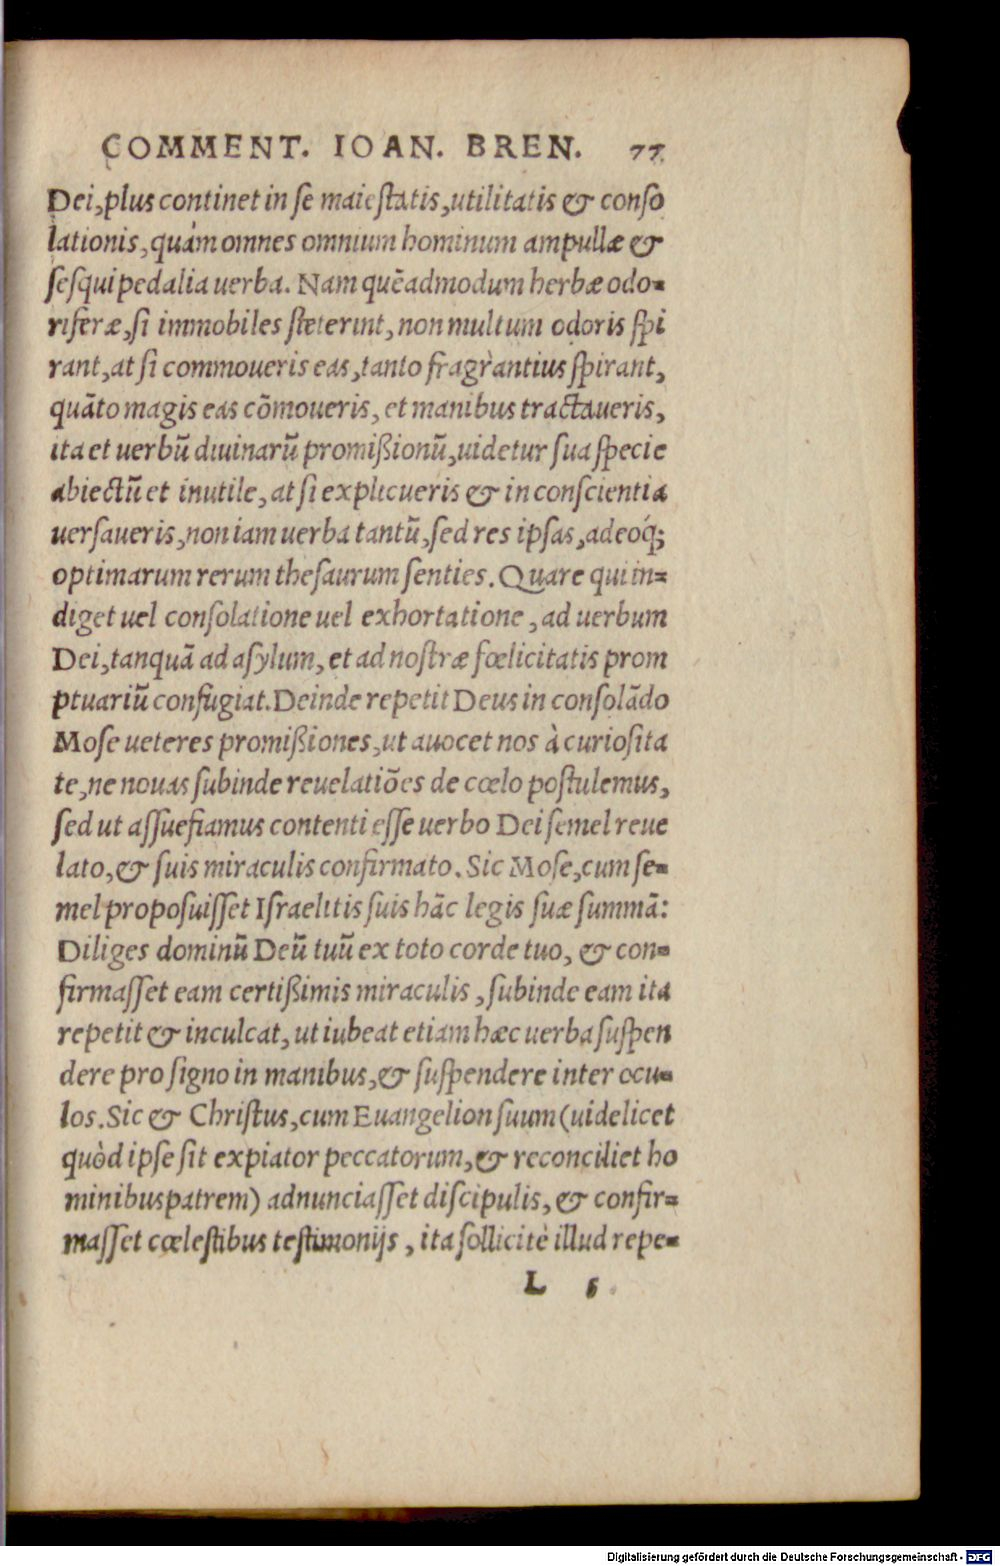 COMMENT. IOAN. BREN. 77
Dei, plus continet in se maiestatis, utilitatis & conso
lationis, quàm omnes omnium hominum ampullæ &
sesquipedalia uerba. Nam quēadmodum herbæ odo-
riferæ, si immobiles steterint, non multum odoris spi
rant, at si commoueris eas, tanto fragrantius spirant,
quāto magis eas cōmoueris, et manibus tractaueris,
ita et uerbū diuinarū promißionū, uidetur sua specie
abiectū et inutile, at si explicueris & in conscientia
uersaueris, non iam uerba tantū, sed res ipsas, adeoq́;
optimarum rerum thesaurum senties. Quare qui in-
diget uel consolatione uel exhortatione, ad uerbum
Dei, tanquā ad asylum, et ad nostræ fœlicitatis prom
ptuariū confugiat. Deinde repetit Deus in consolādo
Mose ueteres promißiones, ut auocet nos à curiosita
te, ne nouas subinde reuelatiōes de cœlo postulemus,
sed ut assuefiamus contenti esse uerbo Dei semel reue
lato, & suis miraculis confirmato. Sic Mose, cum se-
mel proposuisset Israelitis suis hāc legis suæ summā:
Diliges dominū Deū tuū ex toto corde tuo, & con-
firmasset eam certißimis miraculis, subinde eam ita
repetit & inculcat, ut iubeat etiam hæc uerba suspen
dere pro signo in manibus, & suspendere inter ocu-
los. Sic & Christus, cum Euangelion suum (uidelicet
quòd ipse sit expiator peccatorum, & reconciliet ho
minibus patrem) adnunciasset discipulis, & confir-
masset cœlestibus testimonijs, ita sollicitè illud repe-
L 5
Digitalisierung gefördert durch die Deutsche Forschungsgemeinschaft - DFG